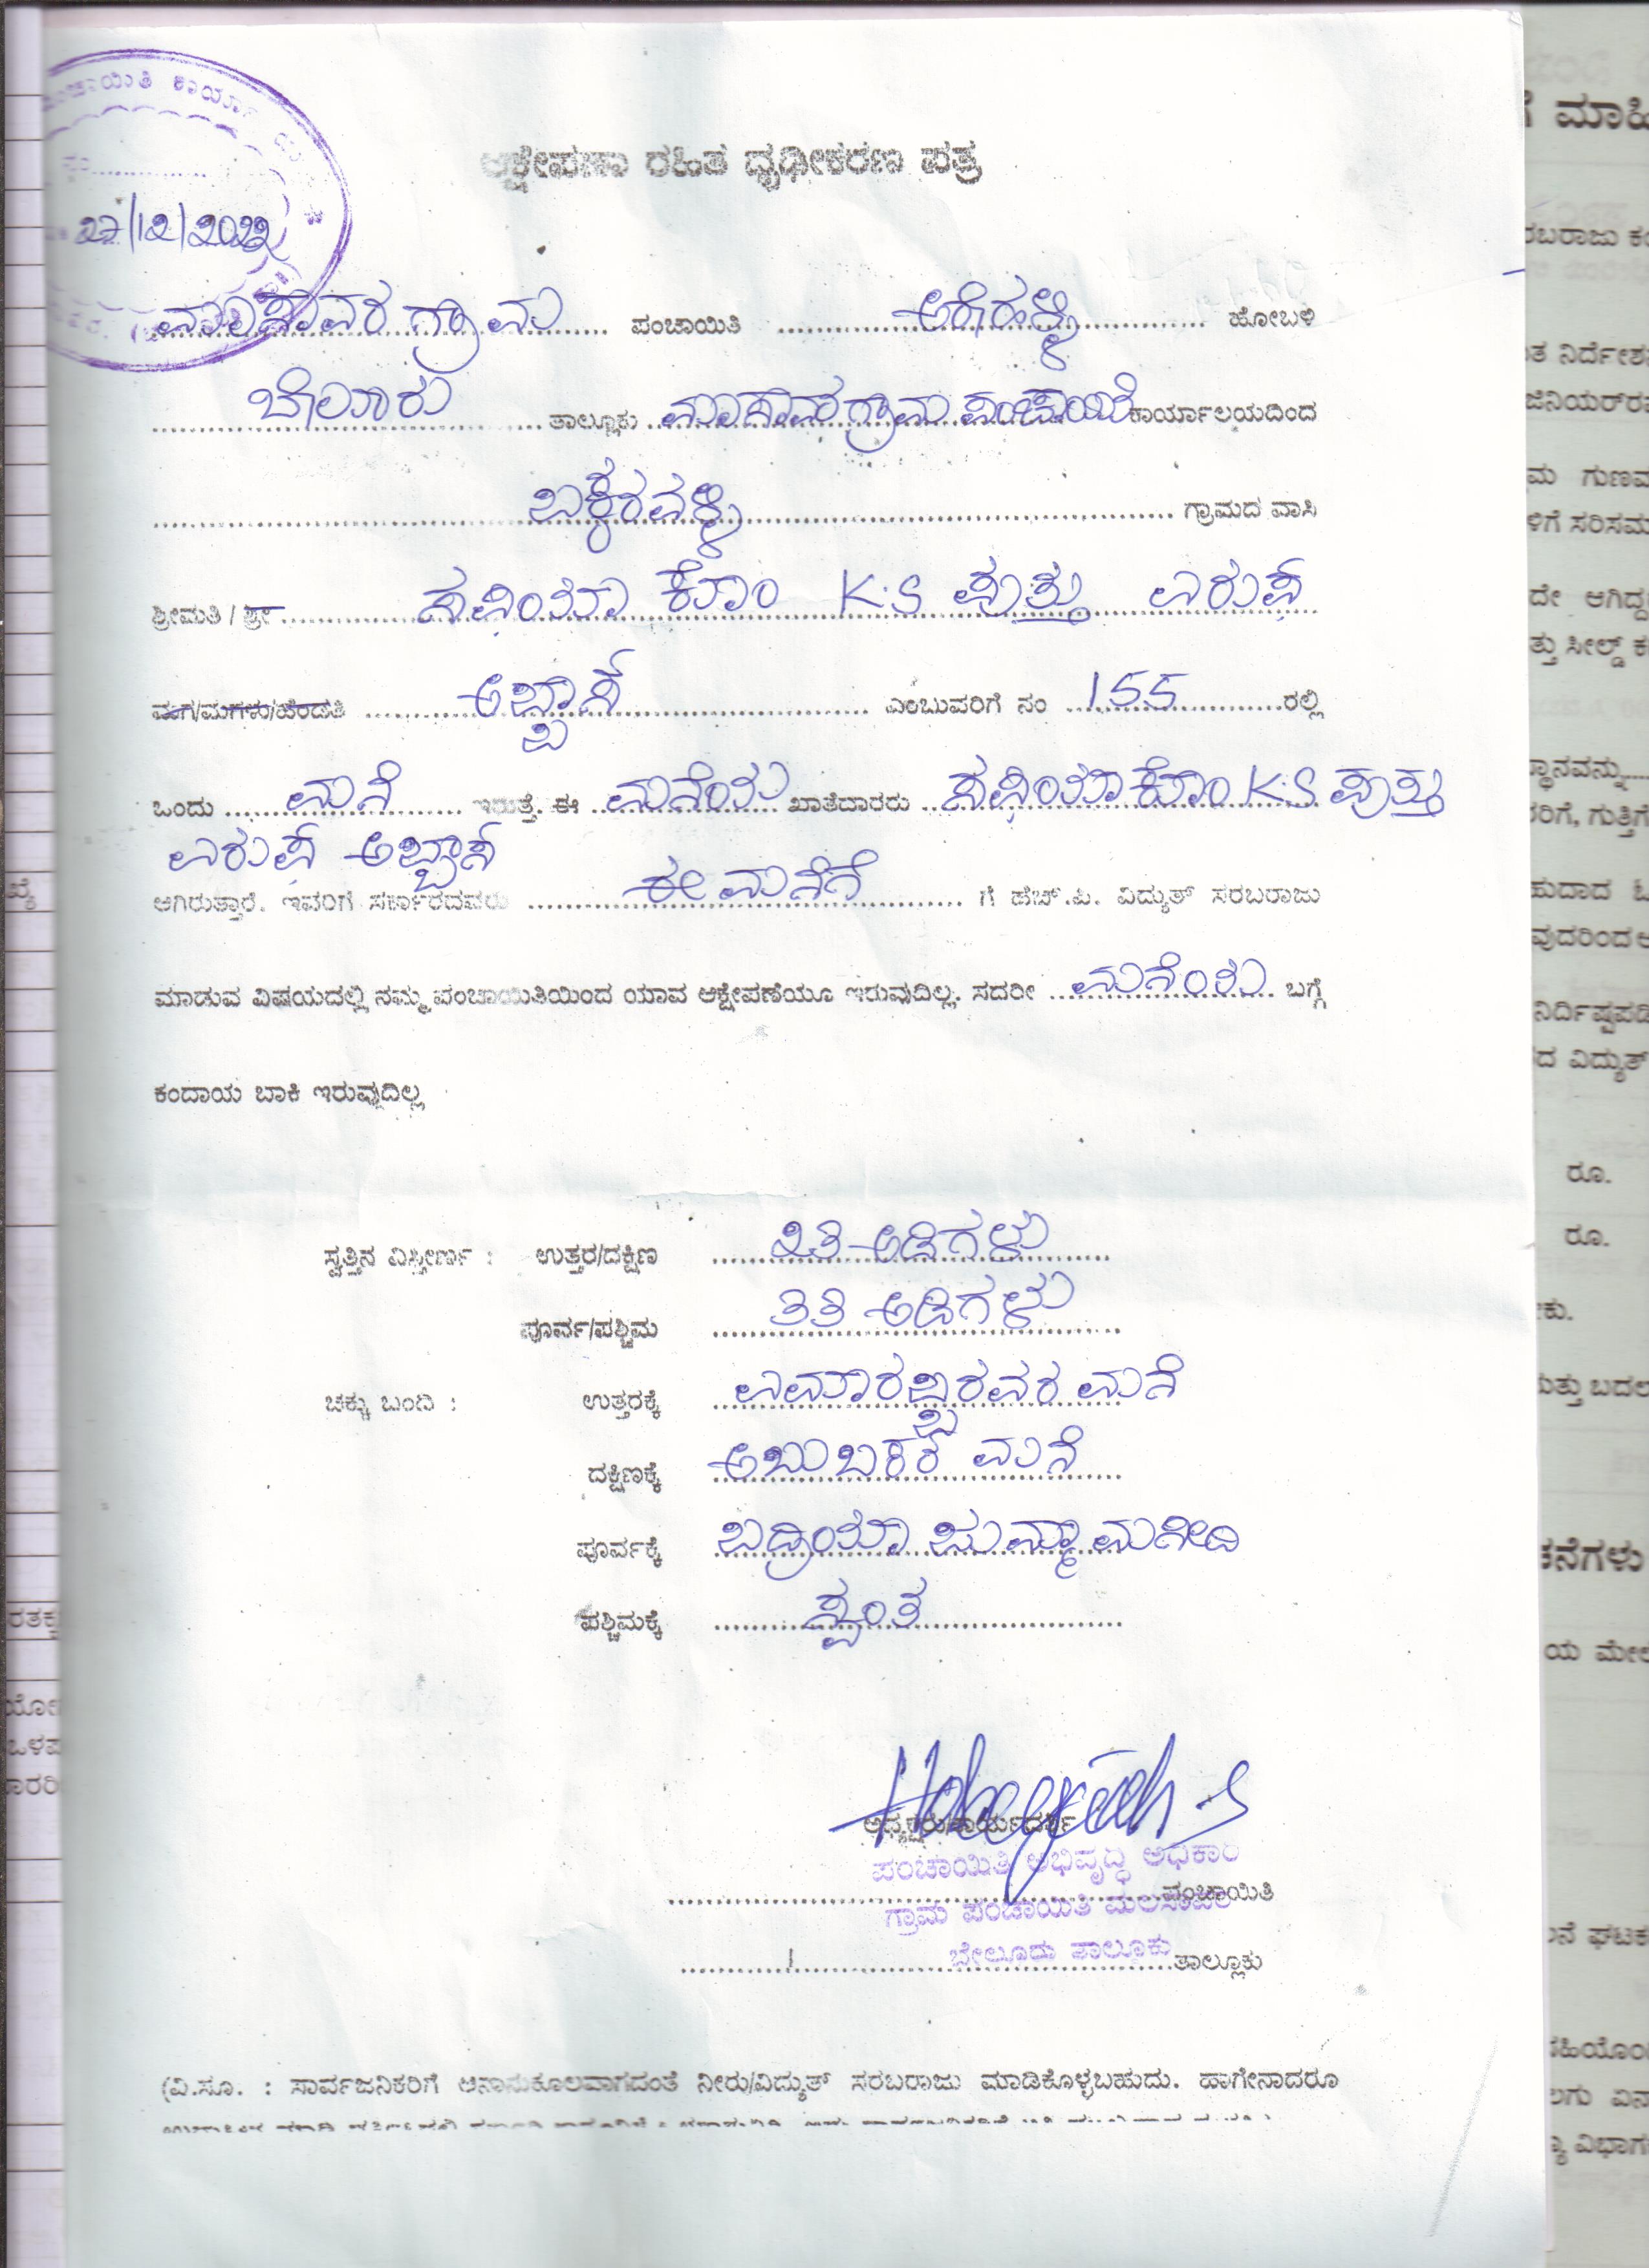 ಪಂಚಾಯಿತಿ ಕಾರ್ಯಾ
ನಂ..............
27/12/2022
ಆಕ್ಷೇಪಣಾ ರಹಿತ ದೃಢೀಕರಣ ಪತ್ರ
ಮಲಸಾವರ ಗ್ರಾಮ ಪಂಚಾಯಿತಿ ಅರೇಹಳ್ಳಿ ಹೋಬಳಿ
ಬೇಲೂರು ತಾಲ್ಲೂಕು ಮಲಸಾವರ ಗ್ರಾಮ ಪಂಚಾಯಿತಿ ಕಾರ್ಯಾಲಯದಿಂದ
ಬಕ್ಕರವಳ್ಳಿ ಗ್ರಾಮದ ವಾಸಿ
ಶ್ರೀಮತಿ / ಶ್ರೀ ಸಫಿಯಾ ಕೋಂ K.S ಪುತ್ತು ಎರುಫ್
ಮಗ/ಮಗಳು/ಹೆಂಡತಿ ಅಬ್ಬಾಸ್ ಎಂಬುವರಿಗೆ ನಂ 155 ರಲ್ಲಿ
ಒಂದು ಮನೆ ಇರುತ್ತೆ. ಈ ಮನೆಯು ಖಾತೆದಾರರು ಸಫಿಯಾ ಕೋಂ K.S ಪುತ್ತು
ಎರುಫ್ ಅಬ್ಬಾಸ್
ಆಗಿರುತ್ತಾರೆ. ಇವರಿಗೆ ಸರ್ಕಾರದವರು ಈ ಮನೆಗೆ ಗೆ ಹೆಚ್.ಪಿ. ವಿದ್ಯುತ್ ಸರಬರಾಜು
ಮಾಡುವ ವಿಷಯದಲ್ಲಿ ನಮ್ಮ ಪಂಚಾಯಿತಿಯಿಂದ ಯಾವ ಆಕ್ಷೇಪಣೆಯೂ ಇರುವುದಿಲ್ಲ. ಸದರೀ ಮನೆಯ ಬಗ್ಗೆ
ಕಂದಾಯ ಬಾಕಿ ಇರುವುದಿಲ್ಲ
ಸ್ವತ್ತಿನ ವಿಸ್ತೀರ್ಣ : ಉತ್ತರ/ದಕ್ಷಿಣ ೩೨ ಅಡಿಗಳು
ಪೂರ್ವ/ಪಶ್ಚಿಮ ೩೩ ಅಡಿಗಳು
ಚಕ್ಕು ಬಂದಿ : ಉತ್ತರಕ್ಕೆ ಮನೆ
ದಕ್ಷಿಣಕ್ಕೆ ಅಬುಬಕರ ಮನೆ
ಪೂರ್ವಕ್ಕೆ ಬದ್ರಿಯಾ ಜುಮ್ಮಾ ಮಸೀದಿ
ಪಶ್ಚಿಮಕ್ಕೆ ಸ್ವಂತ
ಅಧ್ಯಕ್ಷರು/ಕಾರ್ಯದರ್ಶಿ
ಪಂಚಾಯಿತಿ ಅಭಿವೃದ್ಧಿ ಅಧಿಕಾರಿ
ಪಂಚಾಯಿತಿ
ಗ್ರಾಮ ಪಂಚಾಯಿತಿ ಮಲಸಾವರ
ಬೇಲೂರು ತಾಲೂಕು
ತಾಲ್ಲೂಕು
(ವಿ.ಸೂ. : ಸಾರ್ವಜನಿಕರಿಗೆ ಅನಾನುಕೂಲವಾಗದಂತೆ ನೀರು/ವಿದ್ಯುತ್ ಸರಬರಾಜು ಮಾಡಿಕೊಳ್ಳಬಹುದು. ಹಾಗೇನಾದರೂ